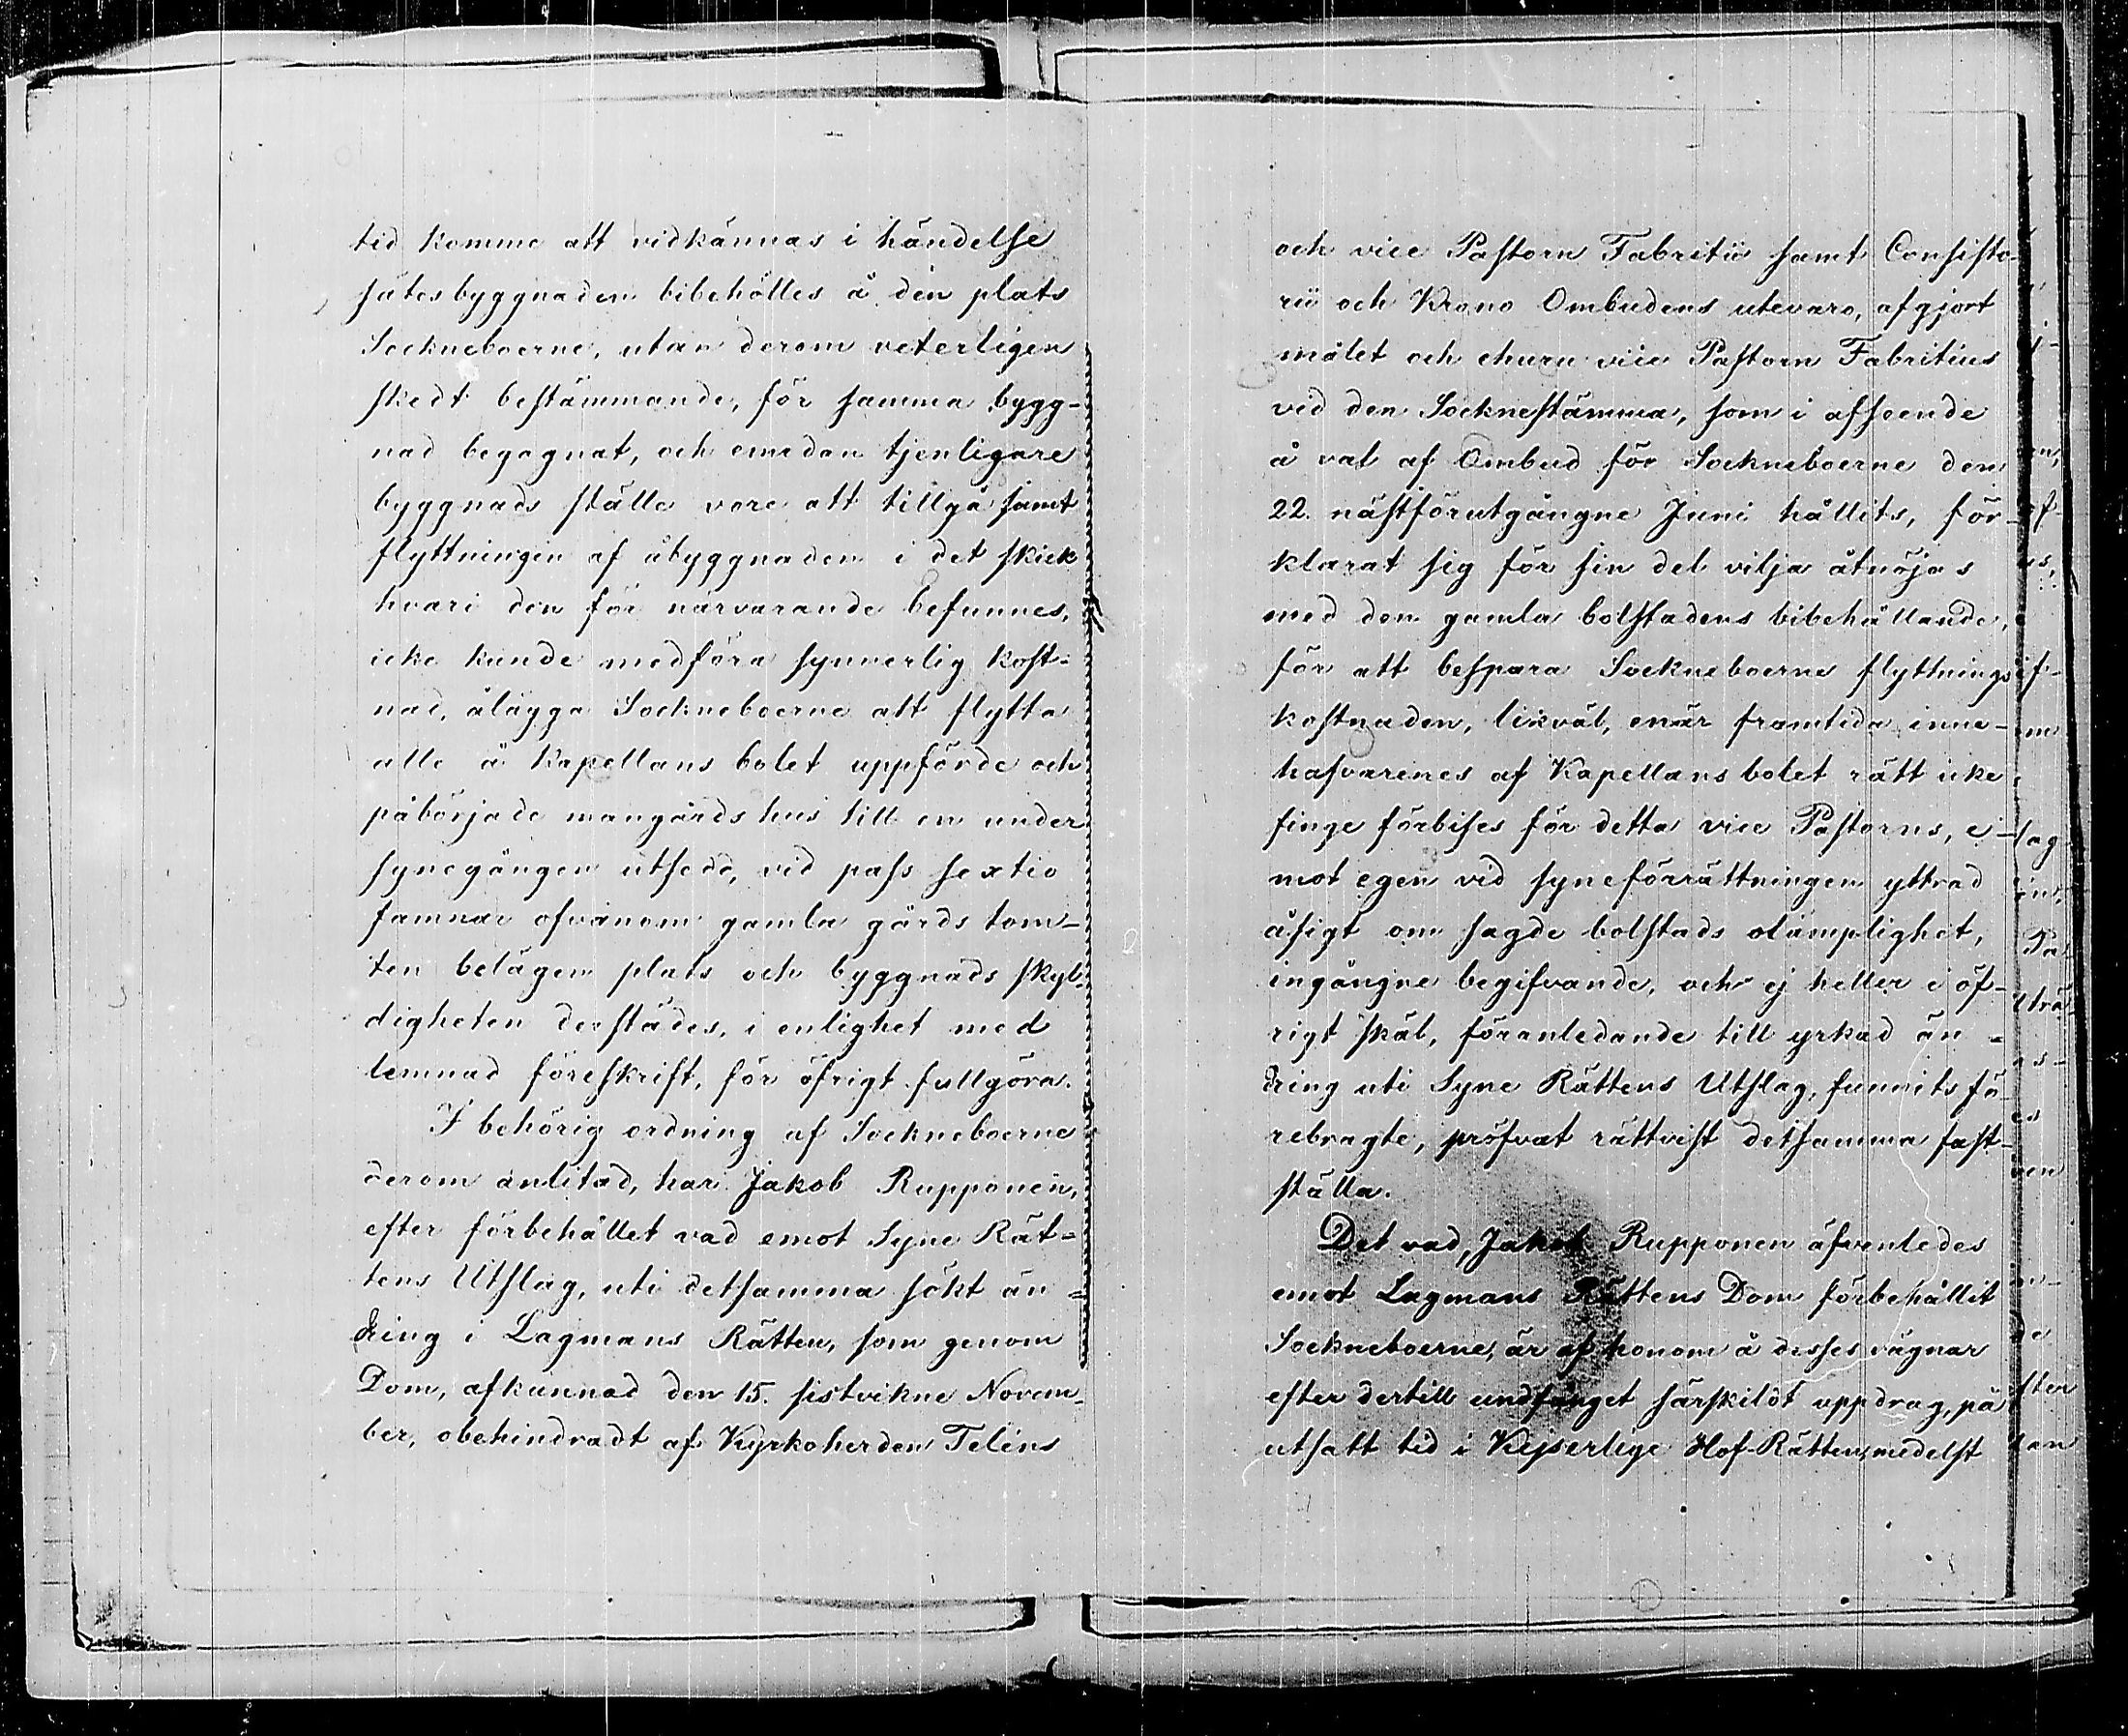 tid komme att vidkännas i händelse
sätesbyggnaden bibehölles å den plats
Sockneboerne, utan derom veterligen
skedt bestämmande, för samma bygg-
nad begagnat, och emedan tjenligare
byggnads ställe vore att tillgå samt
flyttningen af åbyggnaden i det skick
hvari den för närvarande befunnes,
icke kunde medföra synnerlig kost-
nad, ålägga Sockneboerne att flytta
alle å Kapellans bolet uppförde och
påbörjade mangårds hus till en under
synegången utsedd, vid pass sextio
famnar ofvanom gamla gårds tom-
ten belägen plats och byggnads skyl-
digheten derstädes, i enlighet med
lemnad föreskrift, för öfrigt fullgöra.
I behörig ordning af Sockneboerne
derom anlitad, har Jakob Rupponen,
efter förbehållet vad emot Syne Rät-
tens Utslag, uti detsamma sökt än-
dring i Lagmans Rätten, som genom
Dom, afkunnad den 15. sistvikne Novem-
ber, obehindradt af Kyrkoherden Teléns
och vice Pastorn Fabritii samt Consisto-
rii och Krono Ombudens utevaro, afgjort
målet och ehuru vice Pastorn Fabritius
vid den Socknestämma, som i afseende
å val af Ombud för Sockneboerne den
22. nästförutgångne Juni hållits, för-
klarat sig för sin del vilja åtnöjas
med den gamla bolstadens bibehållande,
för att bespara Sockneboerne flyttnings
kostnaden, likväl, enär framtida inne-
hafvarenes af Kapellans bolet rätt icke
finge förbises för detta vice Pastorns, e-
mot egen vid syneförrättningen yttrad
åsigt om sagde bolstads olämplighet,
ingångne begifvande, och ej heller i öf-
rigt skäl, föranledande till yrkad än-
dring uti Syne Rättens Utslag, funnits fö-
rebragte, pröfvat rättvist detsamma fast-
ställa.
Det vad, Jakob Rupponen äfvenledes
emot Lagmans Rättens Dom förbehållit
Sockneboerne, är af honom å desses vägnar
efter dertill undfånget särskildt uppdrag, på
utsatt tid i Kejserlige Hof-Rätten, medelst